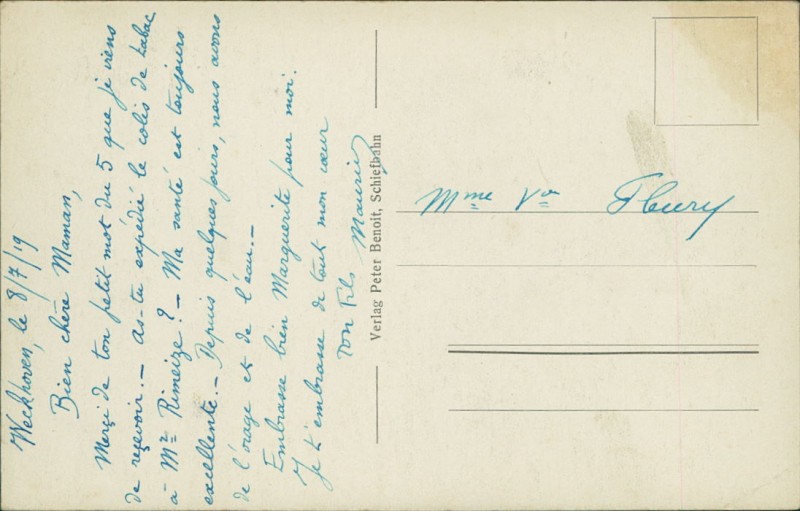 Weckhoven, le 8/7/19
Bien chère Maman,
Merçi de ton petit mot du 5 que je viens
de reçevoir. – As-tu expédié le colis de tabac
à Mr Rimeize ? – Ma santé est toujours
excellente. – Depuis quelques jours, nous avons
de l'orage et de l'eau. –
Embrasse bien Marguerite pour moi.
Je t'embrasse de tout mon cœur
Ton fils Maurice
Verlag Peter Benoit, Schiefbahn
Mme Vve Fleury